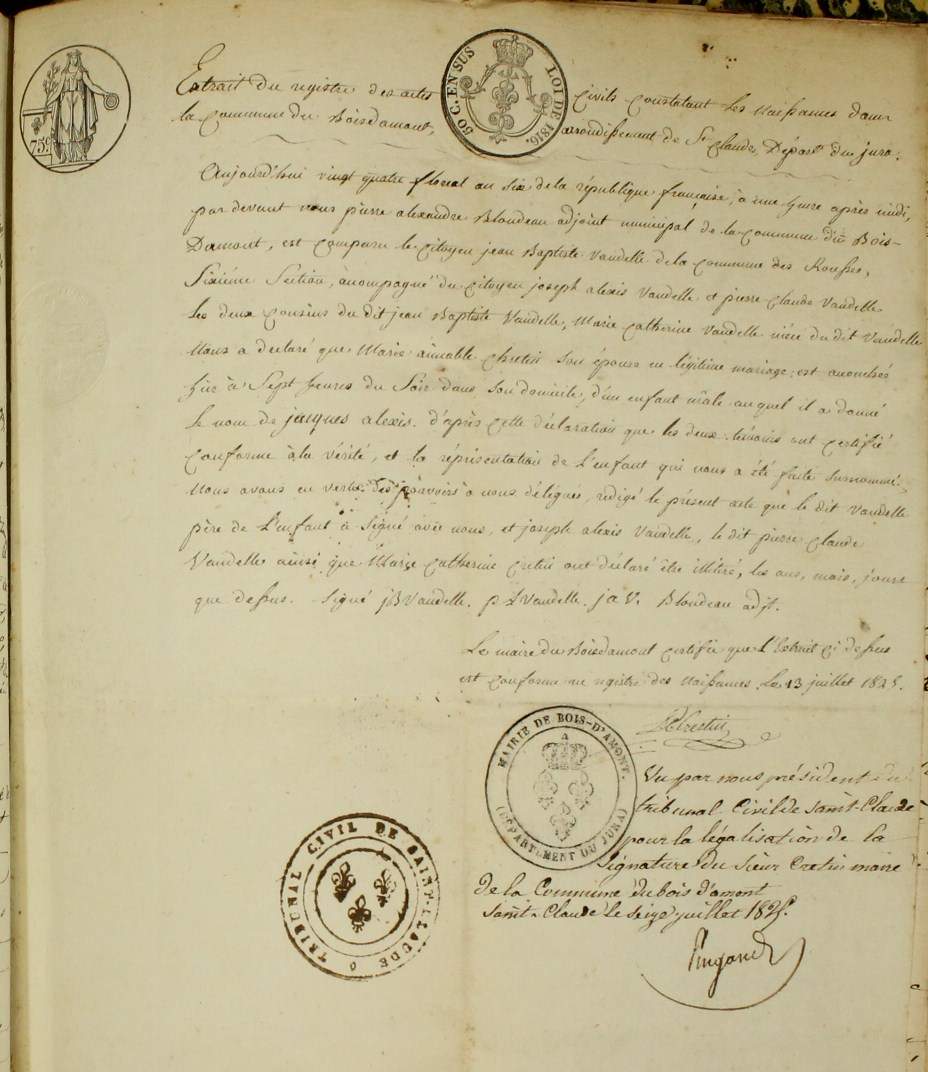 75c
50 C. EN SUS LOI DE 1816.
Extrait du registre des actes civils Constatant les Naissances dans
la Commune du Boisdamont, arrondissement de St Claude, Départ. du jura.
Aujourd'hui vingt quatre floreal an six de la république française, à une heure après midi,
par devant nous pierre alexandre Blondeau adjoint municipal de la commune du Bois-
Damont, est comparu le Citoyen jean Baptiste Vandelle de la commune des Rousses,
Sixiéme Section, accompagné du Citoyen joseph alexis Vandelle et pierre Claude Vandelle
les deux cousins du dit jean Baptiste Vandelle, Marie Catherine Vandelle niéce du dit Vandelle
Nous a declaré que Marie aimable Cretin son épouse en légitime mariage est accouchée
hier à Sept heures du Soir dans son domicile, d'un enfant mâle auquel il a donné
le nom de jacques alexis. d'après cette déclaration que les deux témoins ont certifié
conforme à la vérité, et la réprésentation de l'enfant qui nous a été faite surnommé,
Nous avons en vertu des pouvoirs à nous délégués, rédigé le présent acte que le dit Vandelle
père de l'enfant à Signé avec nous, et joseph alexis Vandelle, le dit pierre Claude
Vandelle ainsi que Marie Catherine Cretin ont déclaré être illitéré, les ans, mois, jours
que dessus. Signé jBVandelle. p Vandelle. jaV. Blondeau adjt.
Le maire du Boisdamont certifie que l'Extrait ci dessus
est conforme au registre des Naissances. le 13 juillet 1825.
Cretin
MAIRIE DE BOIS-D'AMONT.
(DÉPARTEMENT DU JURA)
Vu par nous président du
tribunal Civil de Saint-Claude
pour la légalisation de la
Signature du Sieur Cretin maire
de la Commune du bois d'amont
Saint-Claude le seize juillet 1825.
TRIBUNAL CIVIL DE SAINT-CLAUDE